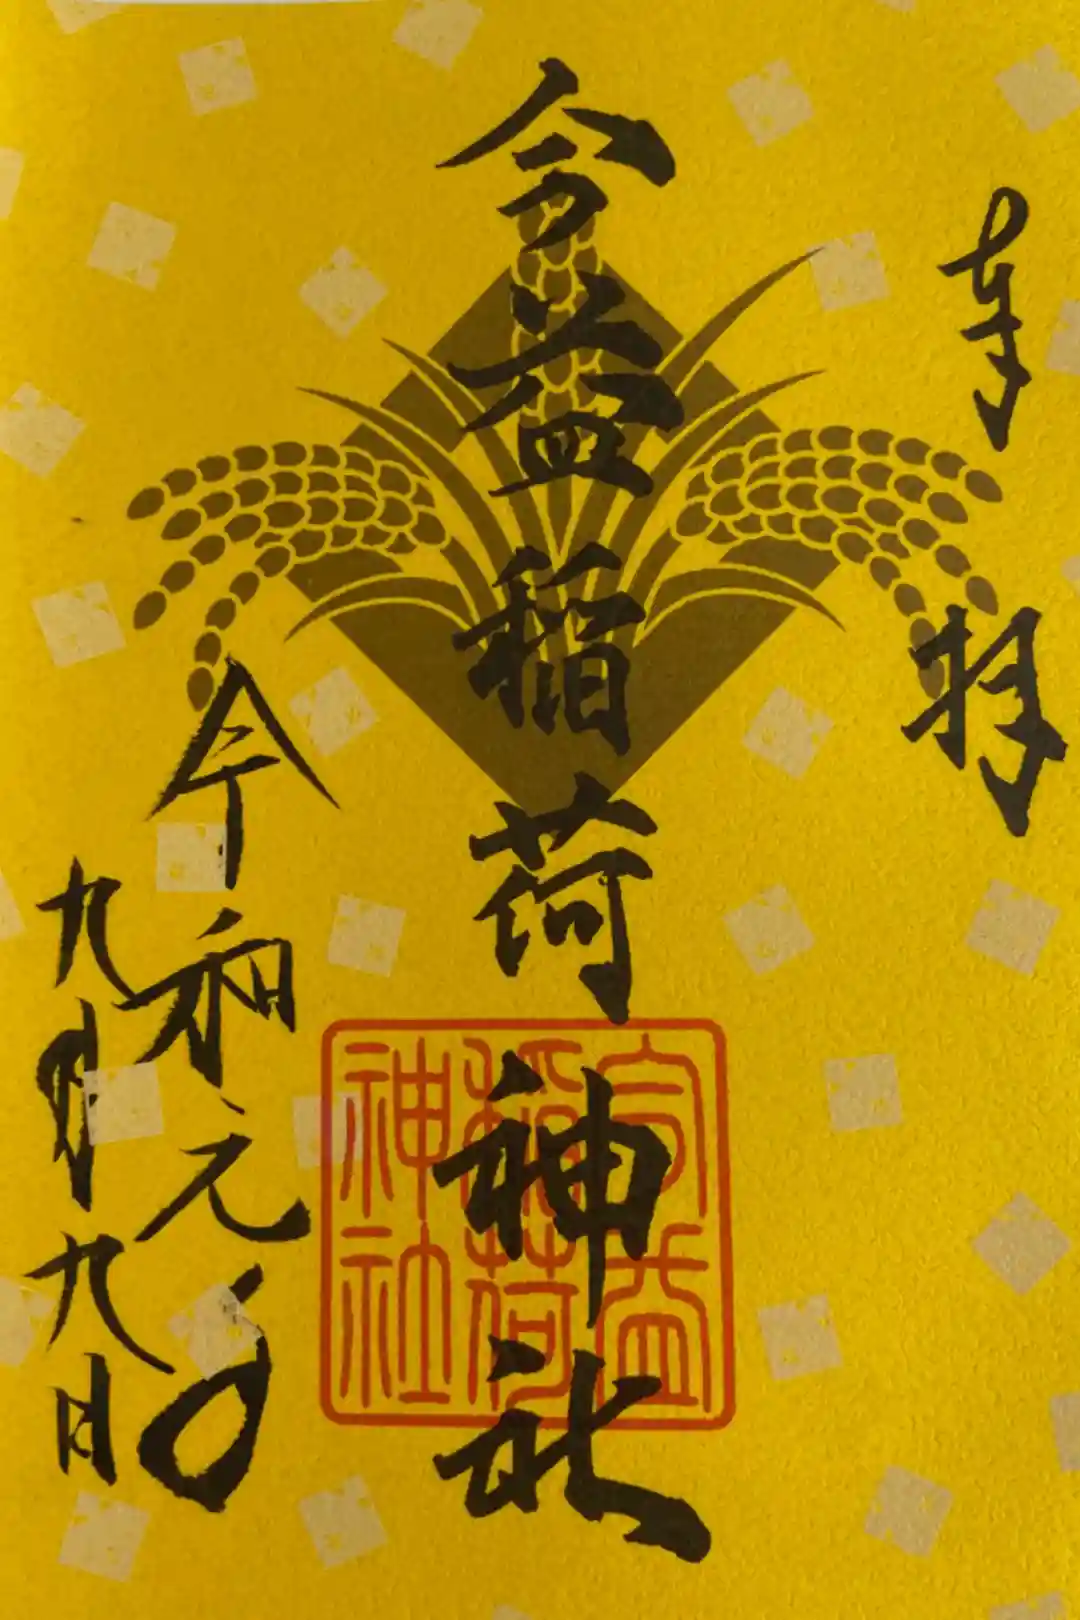 奉拝
今益稲荷神社
令和元年
九月九日
今益
稲荷
神社